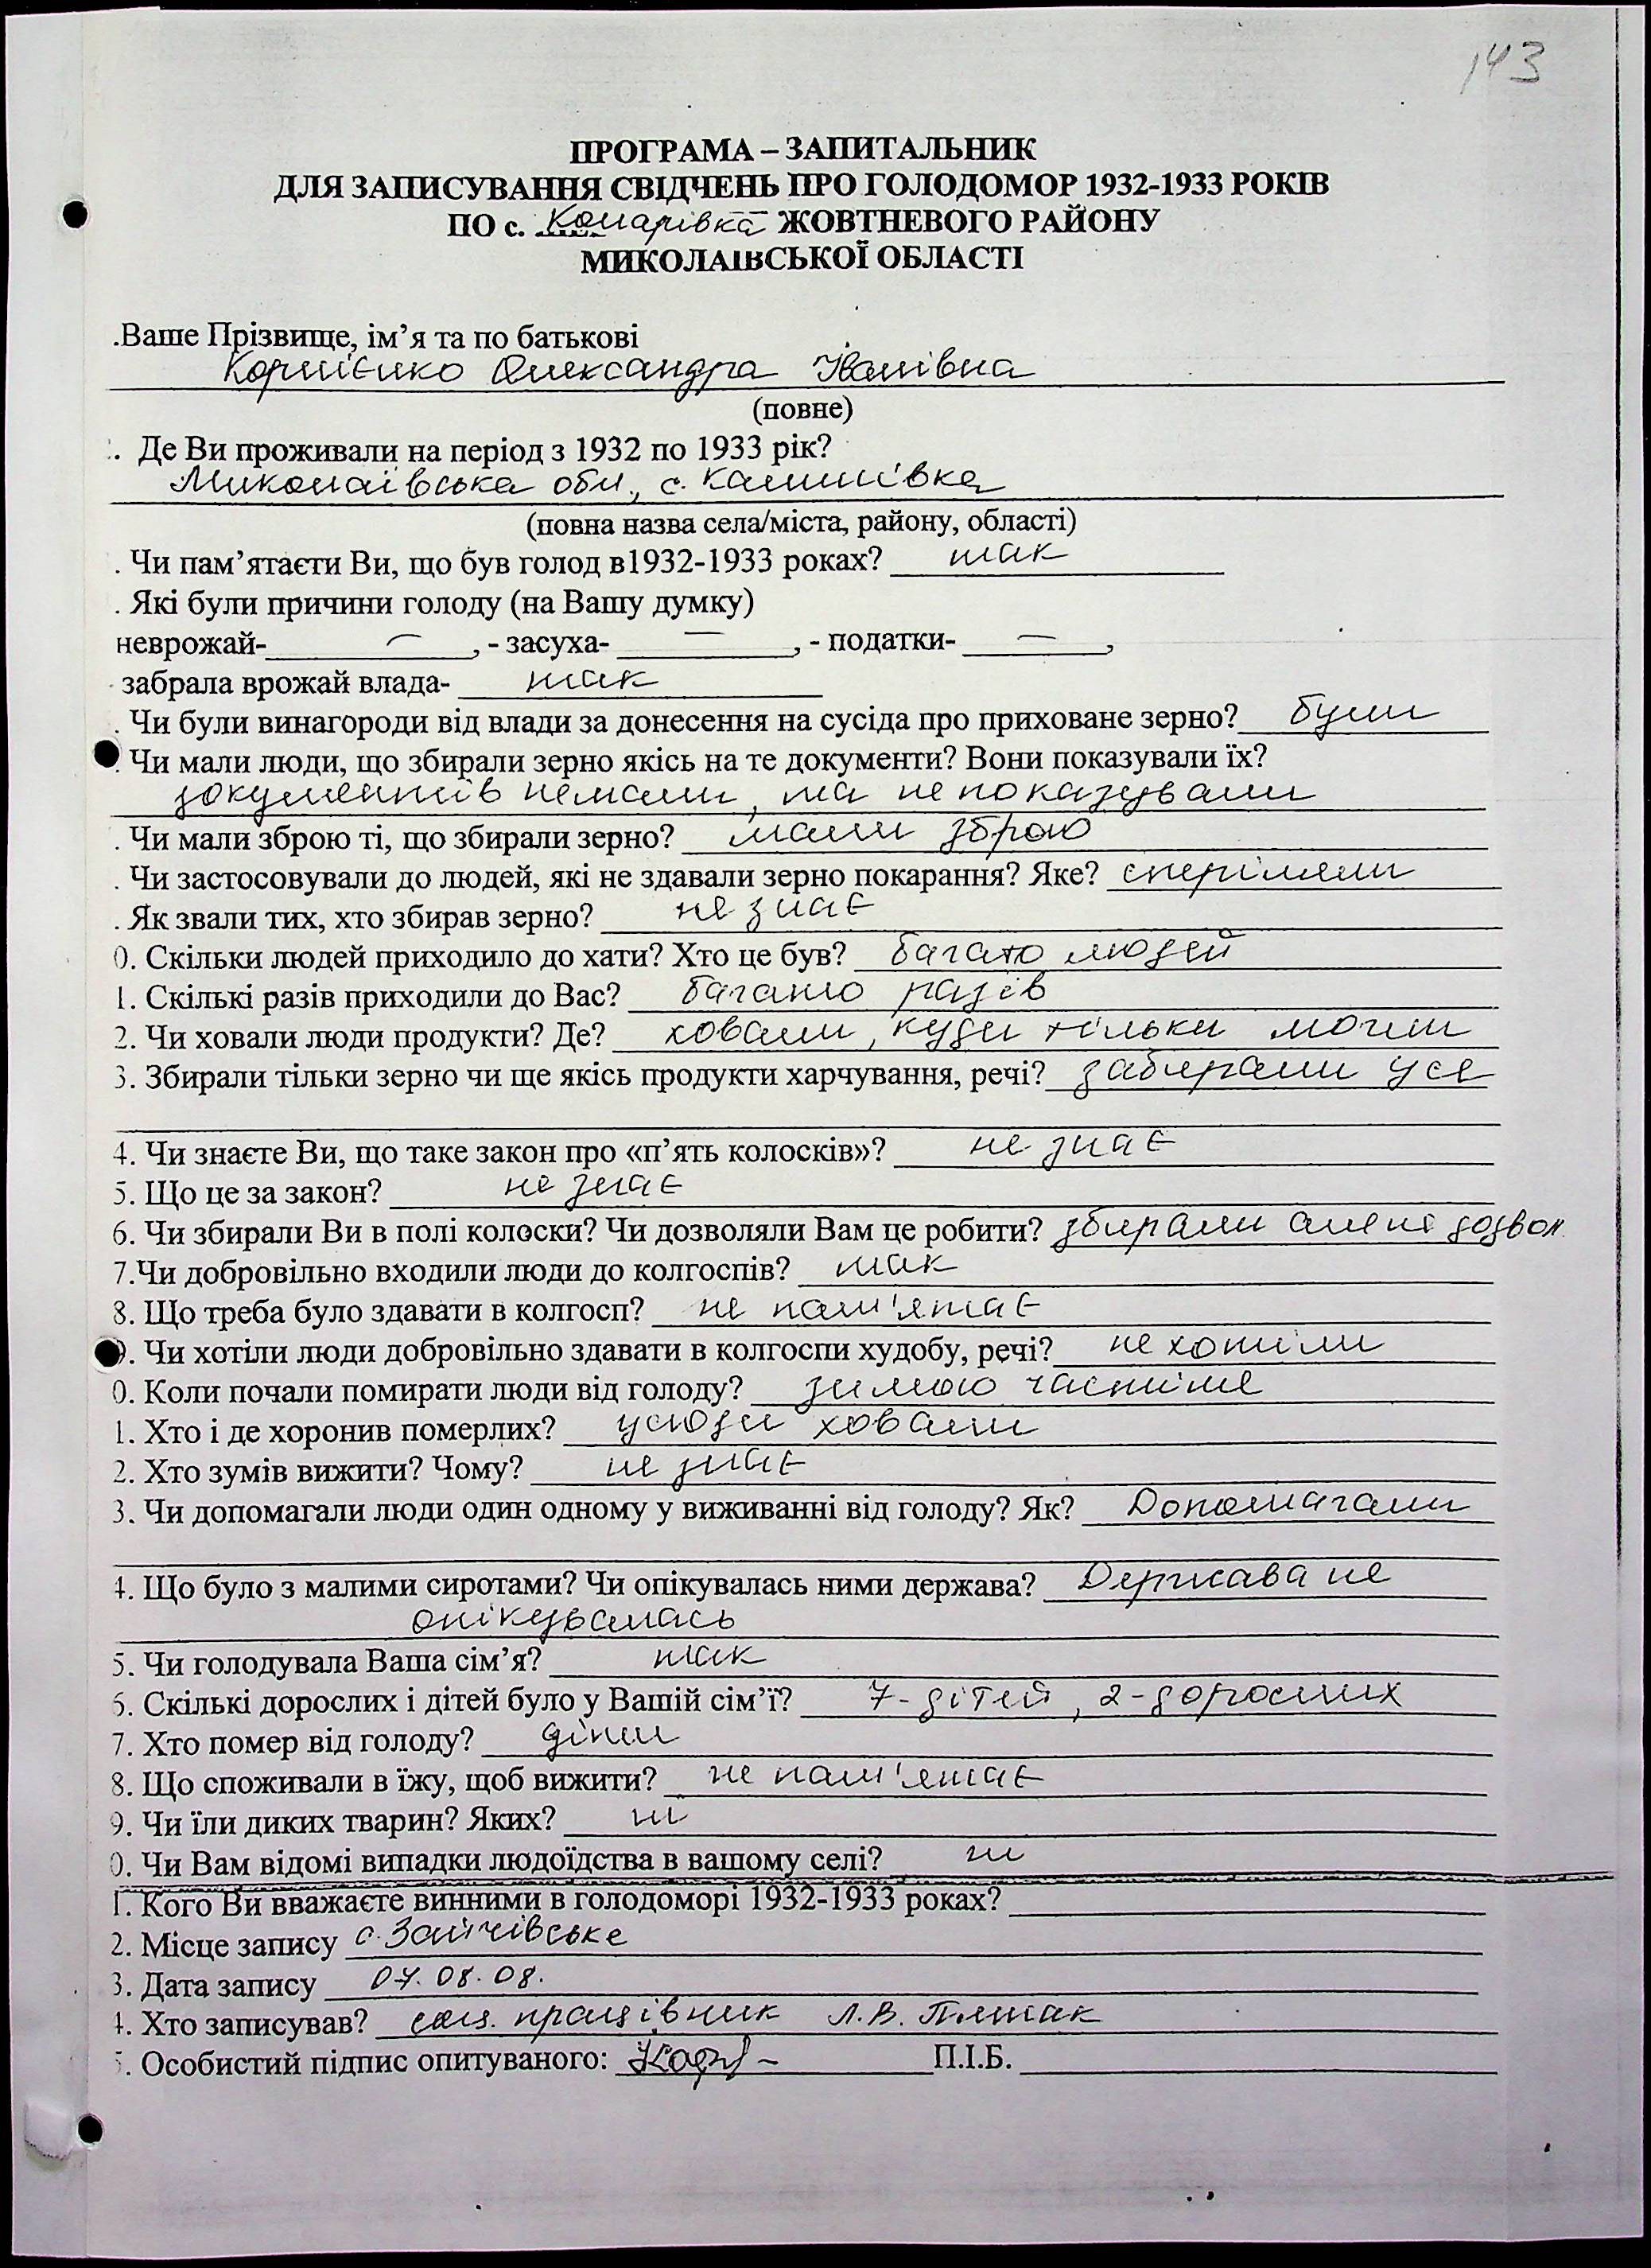 143
ПРОГРАМА – ЗАПИТАЛЬНИК
ДЛЯ ЗАПИСУВАННЯ СВІДЧЕНЬ ПРО ГОЛОДОМОР 1932-1933 РОКІВ
ПО с. Комарівка ЖОВТНЕВОГО РАЙОНУ
МИКОЛАЇВСЬКОЇ ОБЛАСТІ
.Ваше Прізвище, ім’я та по батькові
Корнієнко Олександра Іванівна
(повне)
. Де Ви проживали на період з 1932 по 1933 рік?
Миколаївська обл., с. Калинівка
(повна назва села/міста, району, області)
. Чи пам’ятаєти Ви, що був голод в1932-1933 роках? так
. Які були причини голоду (на Вашу думку)
неврожай- — , - засуха- — , - податки- — ,
забрала врожай влада- так
. Чи були винагороди від влади за донесення на сусіда про приховане зерно? були
. Чи мали люди, що збирали зерно якісь на те документи? Вони показували їх?
документів немали, та не показували
. Чи мали зброю ті, що збирали зерно? мали зброю
. Чи застосовували до людей, які не здавали зерно покарання? Яке?
. Як звали тих, хто збирав зерно? не знає
0. Скільки людей приходило до хати? Хто це був? багато людей
1. Скількі разів приходили до Вас? багато разів
2. Чи ховали люди продукти? Де? ховали, куди тільки могли
3. Збирали тільки зерно чи ще якісь продукти харчування, речі? забирали усе
4. Чи знаєте Ви, що таке закон про «п’ять колосків»? не знає
5. Що це за закон? не знає
6. Чи збирали Ви в полі колоски? Чи дозволяли Вам це робити? збирали але не дозвол
7.Чи добровільно входили люди до колгоспів? так
8. Що треба було здавати в колгосп? не пам'ятає
9. Чи хотіли люди добровільно здавати в колгоспи худобу, речі? не хотіли
0. Коли почали помирати люди від голоду? зимою частіше
1. Хто і де хоронив померлих? усюди ховали
2. Хто зумів вижити? Чому? не знає
3. Чи допомагали люди один одному у виживанні від голоду? Як? Допомагали
4. Що було з малими сиротами? Чи опікувалась ними держава? Держава не
опікувалась
5. Чи голодувала Ваша сім’я? так
6. Скількі дорослих і дітей було у Вашій сім’ї? 7-дітей, 2-дорослих
7. Хто помер від голоду? діти
8. Що споживали в їжу, щоб вижити? не пам'ятає
9. Чи їли диких тварин? Яких? ні
0. Чи Вам відомі випадки людоїдства в вашому селі? ні
1. Кого Ви вважаєте винними в голодоморі 1932-1933 роках?
2. Місце запису с. Зайчівське
3. Дата запису 07.08.08.
4. Хто записував? соц. працівник Л.В.
5. Особистий підпис опитуваного: П.І.Б.